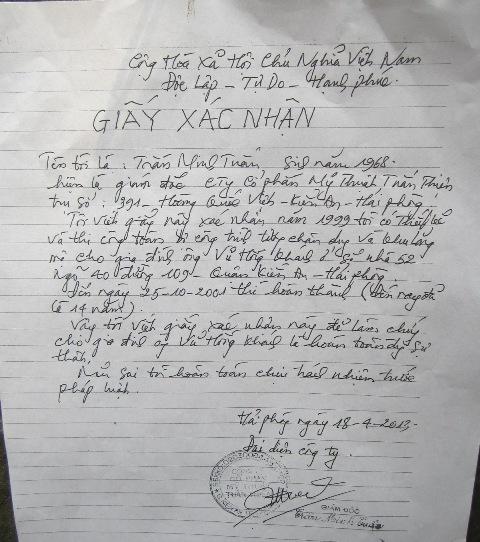 Cộng Hòa Xã Hội Chủ Nghĩa Việt Nam
Độc Lập - Tự Do - Hạnh phúc.
GIẤY XÁC NHẬN
Tên tôi là : Trần Minh Tuấn Sinh năm 1968.
hiện là giám đốc CTy Cổ phần Mỹ Thuật Trần
trụ Sở : 391 - Hương Quốc Việt - Kiến An - Hải phòng.
Tôi Viết giấy này xác nhận năm 1999 tôi có
Và thi công toàn bộ công trình chân dung Và
mộ cho gia đình ông Vũ Hồng Khanh ở Số nhà 52
ngõ 40 đường 109 - Quận Kiến An - Hải phòng.
Đến ngày 25-10-2001 thì hoàn thành (Đến nay đã
là 14 năm).
Vậy tôi Viết giấy xác nhận này để làm chứng
cho gia đình ông Vũ Hồng Khanh là hoàn toàn đúng Sự
thật.
Nếu Sai tôi hoàn toàn chịu trách nhiệm trước
pháp luật.
Hải phòng ngày 18-4-2013.
Đại diện công ty.
CÔNG TY
CỔ PHẦN
GIÁM ĐỐC
Trần Minh Tuấn